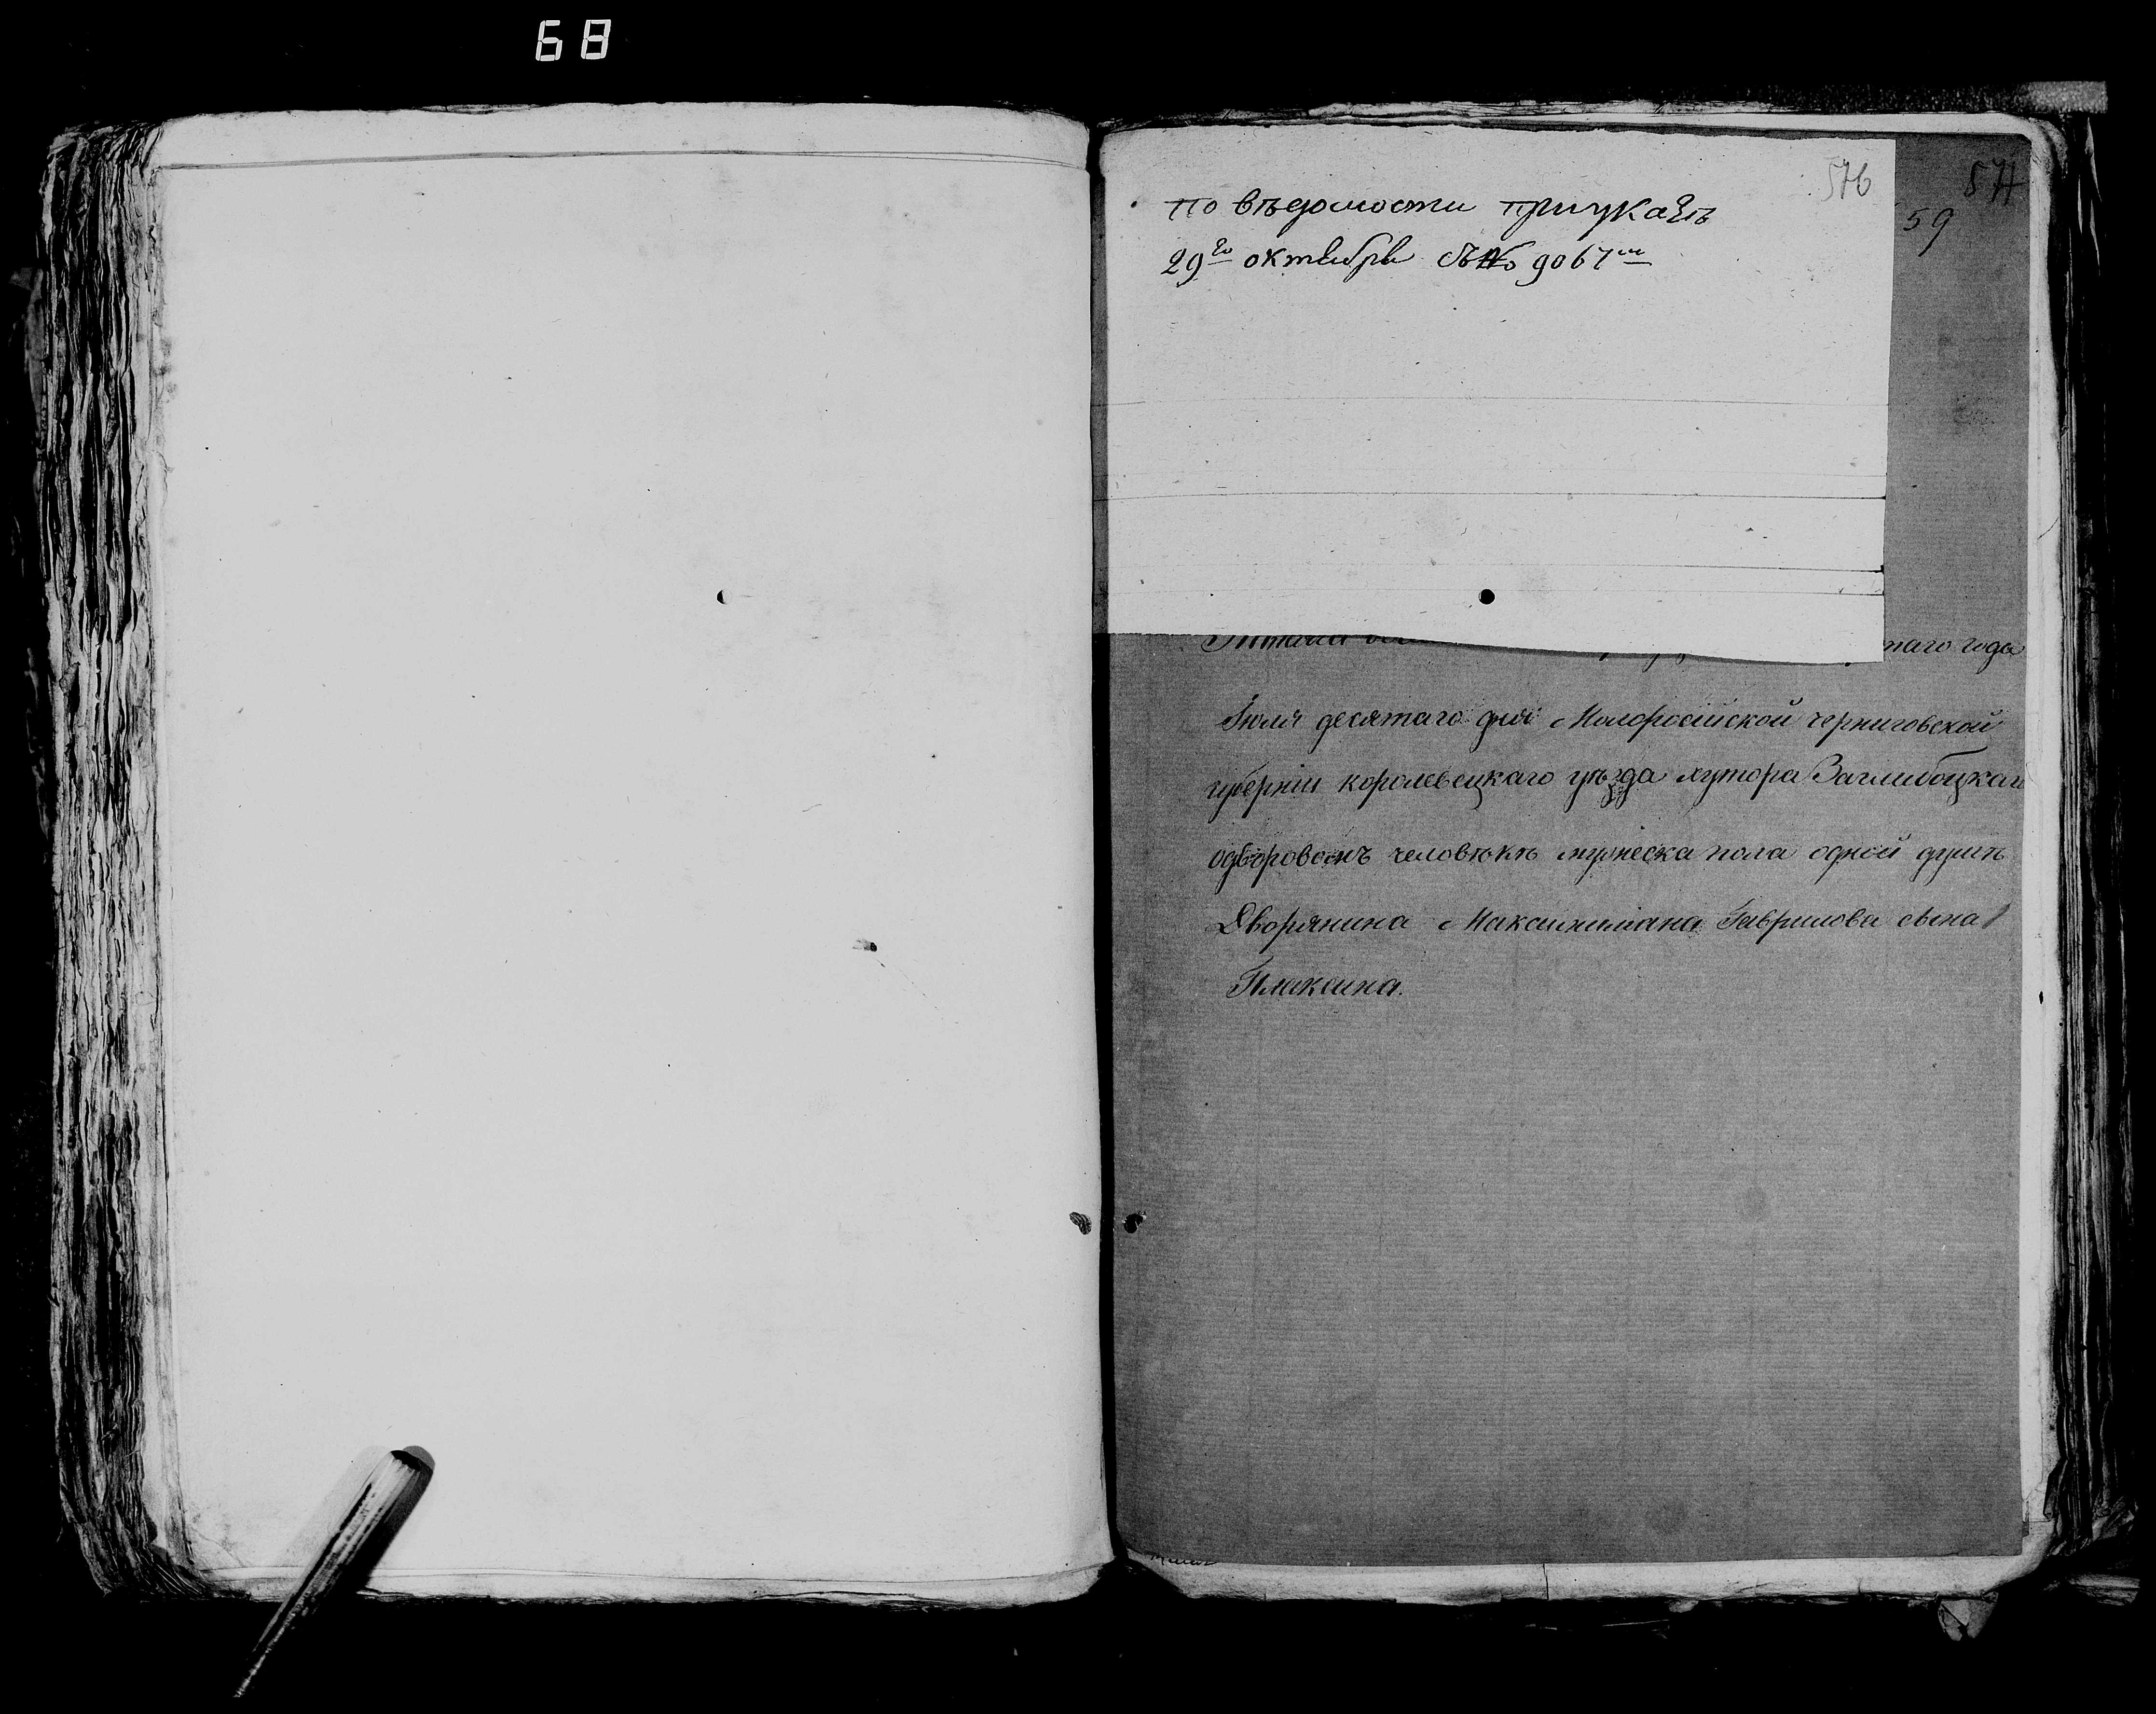 68
576
574
59
по вѣдомости приуказѣ
29го октября съ № 9067м
таго года
Іюля десятаго дня Малоросійской черниговской
губерніи королевецкаго уѣзда хутора Заглибоцкаго
одворовомъ человѣкѣ мужеска пола одной душѣ
Дворянина Максимиліана Гаврилова сына
Плаксина.